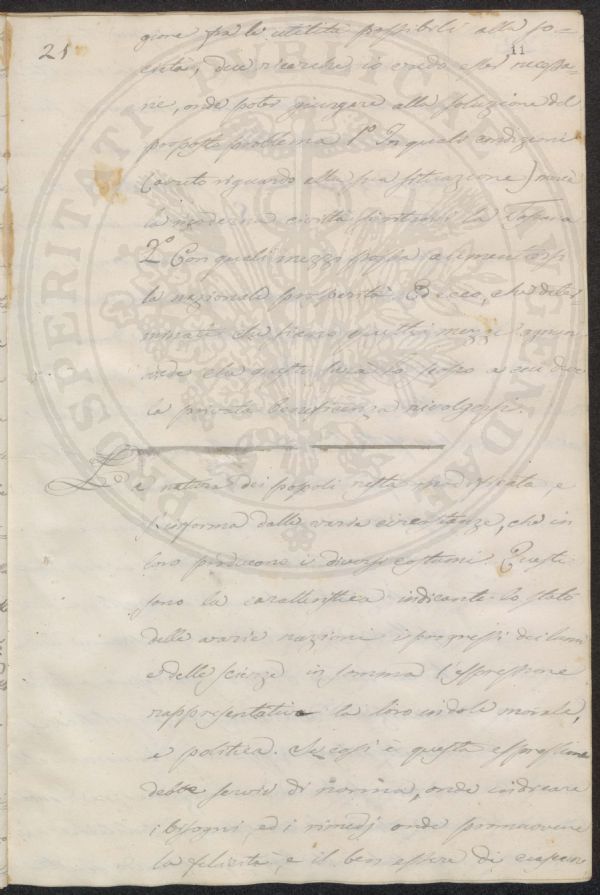 21
11
gione fra le utilità possibili alla so-
cietà, due ricerche io credo esser necessa-
rie, onde poter giungere alla soluzione del
proposto problema 1º In quali condizioni
(avuto riguardo alla sua situazione)
la moderna civiltà ritrovi la Toscana
2º Con quali mezzi possa aumentarsi
la nazionale prosperità. Ed ecco, che deter-
minati che siano questi mezzi
vede che questi sarà lo scopo a cui deve
la privata beneficenza rivolgersi.
La natura dei popoli resta modificata, e
riforma dalle varie circostanze, che in
loro producono i diversi costumi. Questi
sono la caratteristica indicante lo stato
delle varie nazioni i progressi dei lumi
e delle scienze in somma l'espressione
rappresentativa la loro indole morale,
e politica. Se così è questa espressione
debbe servir di norma, onde indicare
i bisogni, ed i rimedj onde promuovere
la felicità, e il ben essere di ciascuno
PROSPERITATI PUBLICAE AUGENDAE